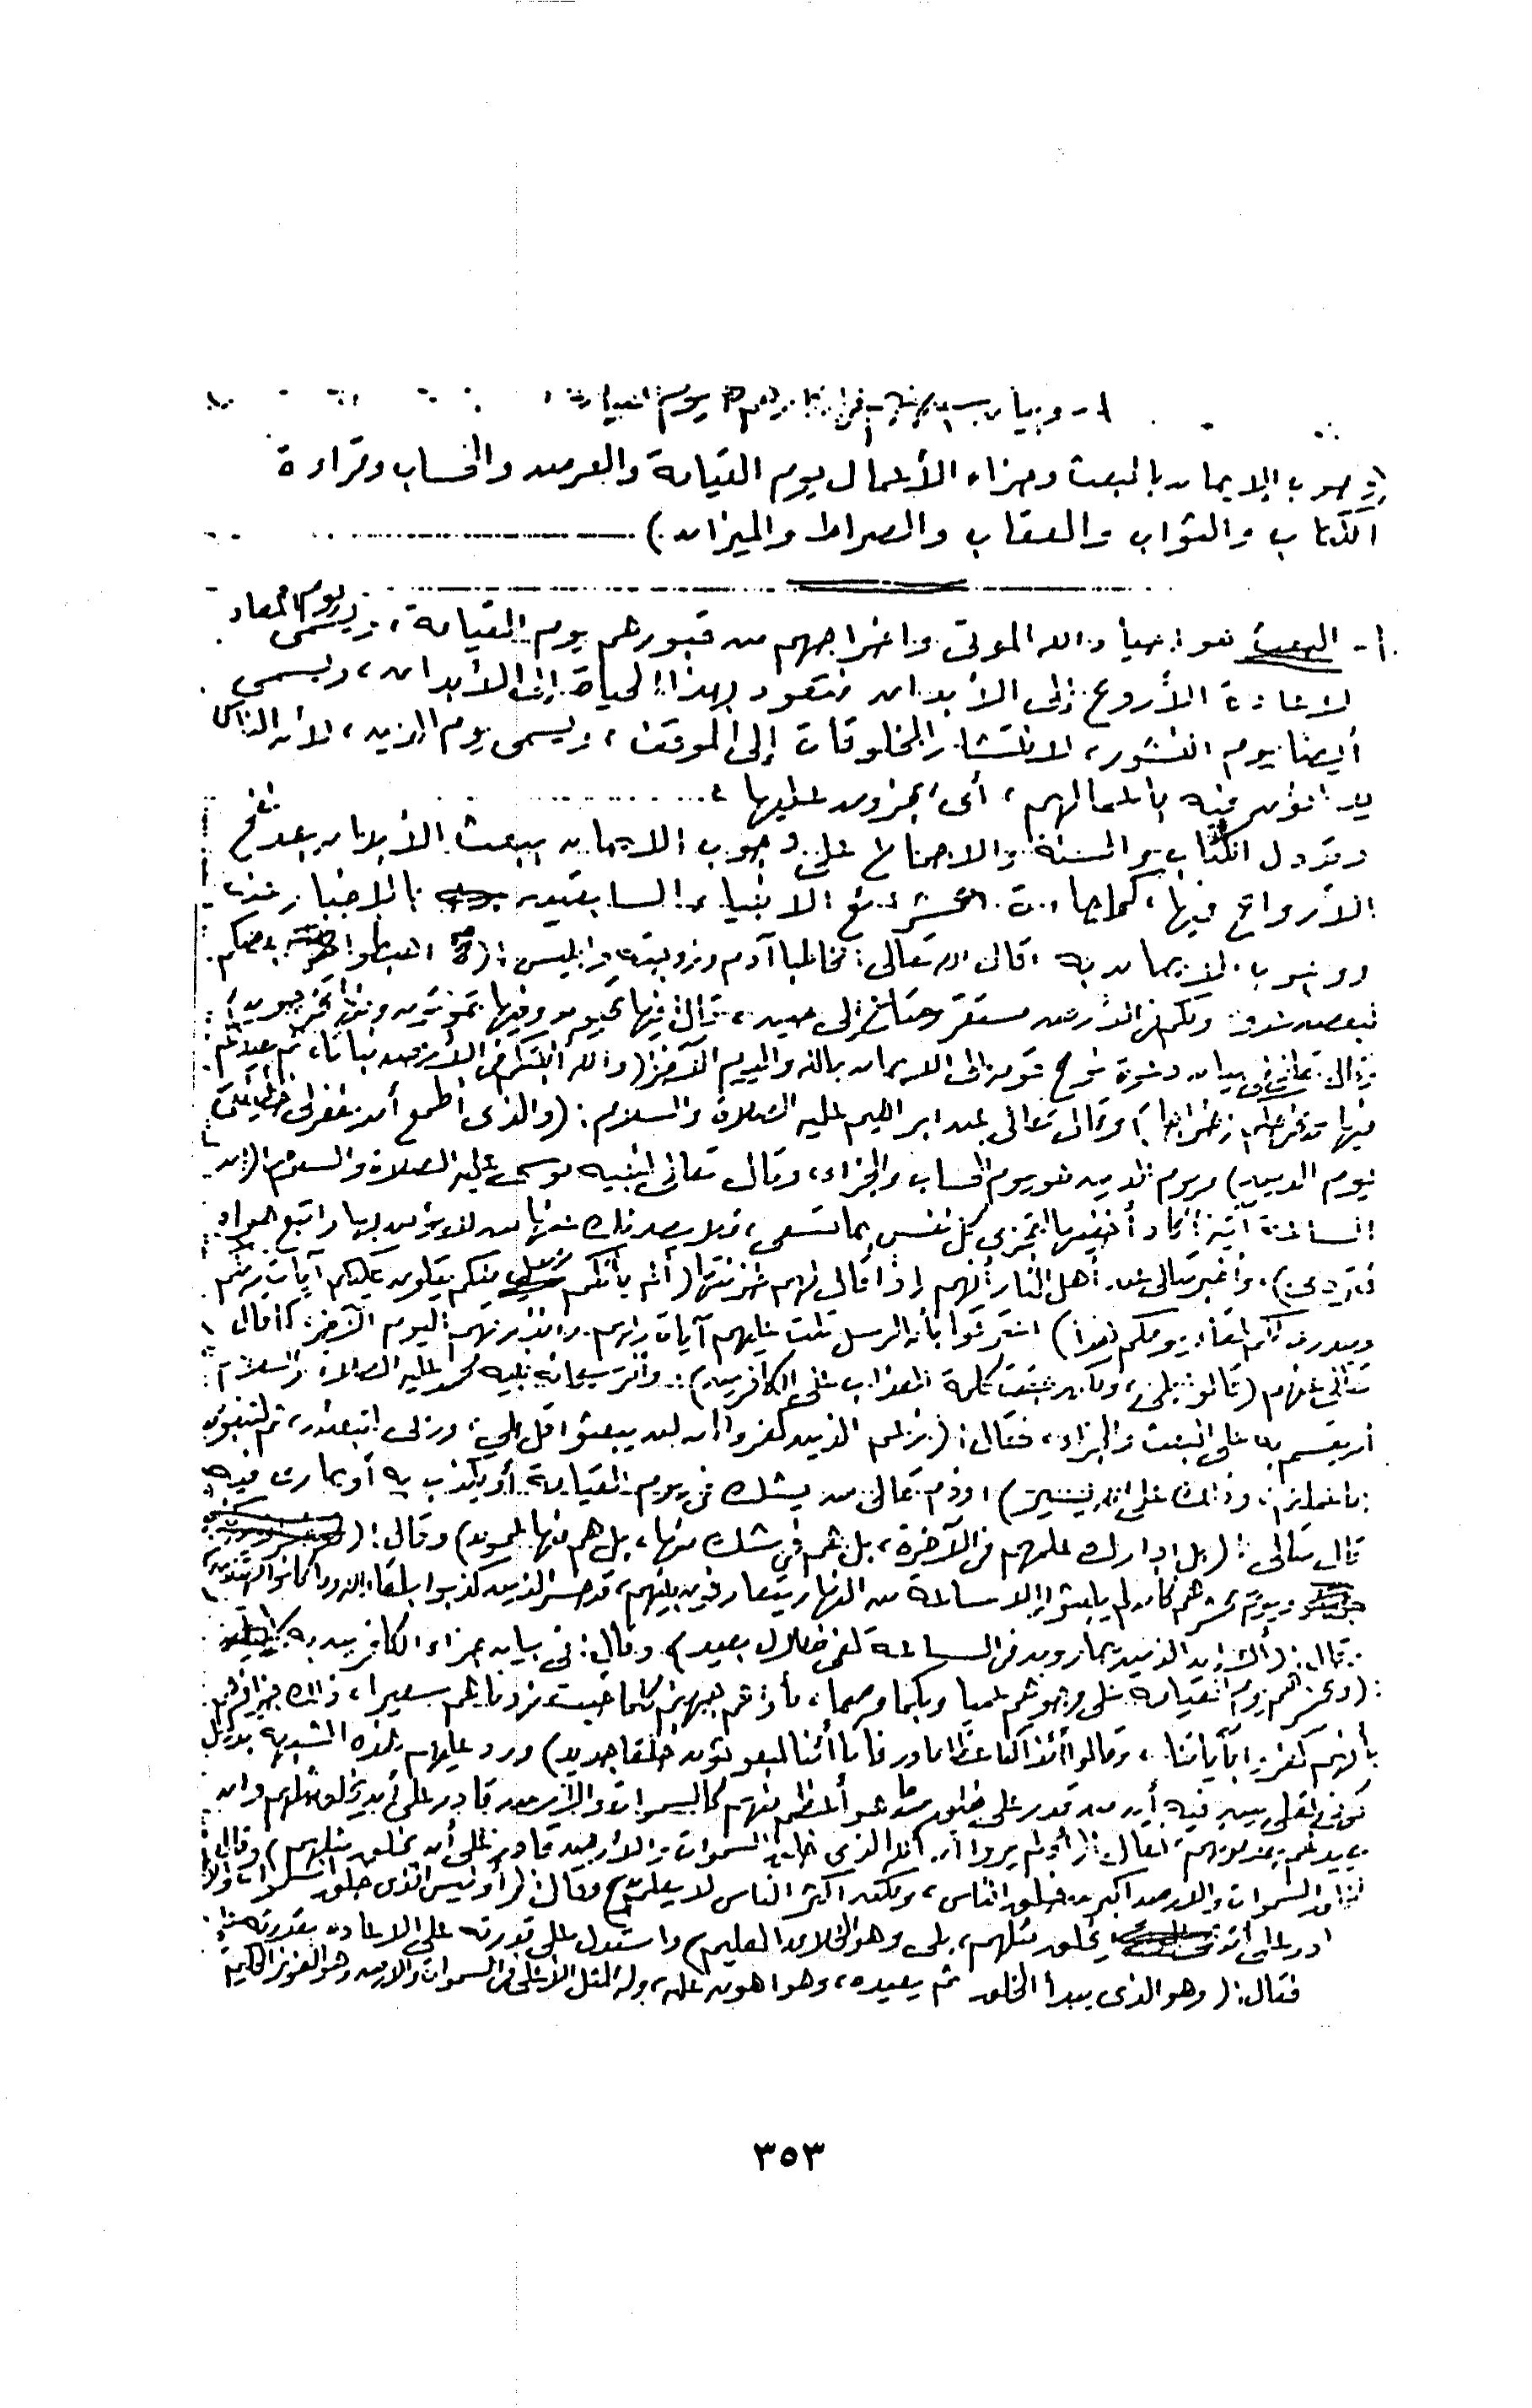 (وجوب الإيمان بالبعث وجزاء الأعمال يوم القيامة والعرض والحساب وقراءة
الكتاب والثواب والعقاب والصراط والميزان)
أ- البعث هو إحياء الله الموتى وإخراجهم من قبورهم يوم القيامة، ويسمى يوم المعاد
لإعادة الأرواح إلى الأبدان فتعود بهذا الحياة إلى الأبدان، ويسمى
أيضا يوم النشور، لانتشار المخلوقات إلى الموقف، ويسمى يوم الدين، لأن الناس
يدانون فيه بأعمالهم، أي يجزون عليها
وتدل الكتاب والسنة والإجماع على وجوب الايمان ببعث الأبدان بعد نفخ
الأرواح فيها، كما جاءت شرائع الانبياء السابقين بالإخبار عنه
ووجوب الإيمان به، قال الله تعالى مخاطبا آدم وزوجته وإبليس: (اهبطوا بعضكم
لبعض عدو ولكم في الأرض مستقر ومتاع إلى حين، قال فيها تحيون وفيها تموتون ومنها تخرجون)
وقال تعالى في بيان دعوة نوح قومه إلى الايمان بالله واليوم الآخر (والله أنبتكم من الأرض نباتا، ثم يعيدكم
فيها ويخرجكم إخراجا) وقال تعالى عن ابراهيم عليه الصلاة والسلام: (والذي أطمع أن يغفر لي خطيئتي
يوم الدين) ويوم الدين هو يوم الحساب والجزاء، وقال تعالى لنبيه موسى عليه الصلاة والسلام (إن
الساعة آتية أكاد أخفيها لتجزى كل نفس بما تسعى، فلا يصدنك عنها من لا يؤمن بها واتبع هواه
فتردى). وأخبر تعالى عن أهل النار أنهم إذا قال لهم خزنتها (ألم يأتكم رسل منكم يتلون عليكم آيات ربكم
وينذرونكم لقاء يومكم هذا) اعترفوا بأن الرسل تلت عليهم آيات ربهم وأنذرتهم اليوم الآخر، كما قال
تعالى عنهم (قالوا بلى، ولكن حقت كلمة العذاب على الكافرين). وأمر سبحانه نبيه محمد عليه الصلاة والسلام
أن يقسم به على البعث والجزاء، فقال: (زعم الذين كفروا أن لن يبعثوا قل بلى، وربي لتبعثن، ثم لتنبؤن
بما عملتم، وذلك على الله يسير)، وذم تعالى من يشك في يوم القيامة أو يكذب به أو يماري فيه
قال تعالى: (بل ادارك علمهم في الآخرة، بل هم في شك منها، بل هم منها عمون) وقال: (
ويوم يحشرهم كأن لم يلبثوا إلا ساعة من النهار يتعارفون بينهم، قد خسر الذين كذبوا بلقاء الله وما كانوا مهتدين)
وقال: (ألا إن الذين يمارون في الساعة لفي ضلال بعيد). وقال: في بيان جزاء الكافرين به
(ونحشرهم يوم القيامة على وجوههم عميا وبكما وصما، مأواهم جهنم كلما خبت زدناهم سعيرا، ذلك جزاؤهم
بأنهم كفروا بآياتنا، وقالوا أئذا كنا عظاما ورفاتا أئنا لمبعوثون خلقا جديدا) ورد عليهم هذه الشبهة بدليل
بين فيه أن من قدر على خلق ما هو أعظم منهم كالسموات والأرض قادر على أن يخلق مثلهم وأن
يعيدهم بعد موتهم، فقال: (أولم يروا أن الله الذي خلق السموات والأرض قادر على أن يخلق مثلهم) وقال:
(لخلق السموات والارض أكبر من خلق الناس، ولكن أكثر الناس لا يعلمون) وقال: (أوليس الذي خلق السموات والأرض
بقادر على أن يخلق مثلهم، بلى وهو الخلاق العليم) واستدل على قدرته على الاعادة بقدرته
فقال: (وهو الذي يبدأ الخلق ثم يعيده، وهو أهون عليه، وله المثل الأعلى في السموات والارض وهو العزيز الحكيم
٣٥٣